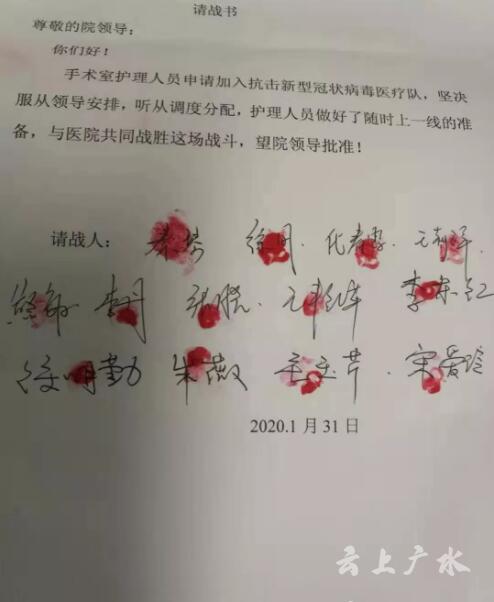 请战书
尊敬的院领导：
你们好！
手术室护理人员申请加入抗击新型冠状病毒医疗队，坚决
服从领导安排，听从调度分配，护理人员做好了随时上一线的准
备，与医院共同战胜这场战斗，望院领导批准！
请战人：
李丹
朱薇
宋爱玲
2020.1月31日
云上广水